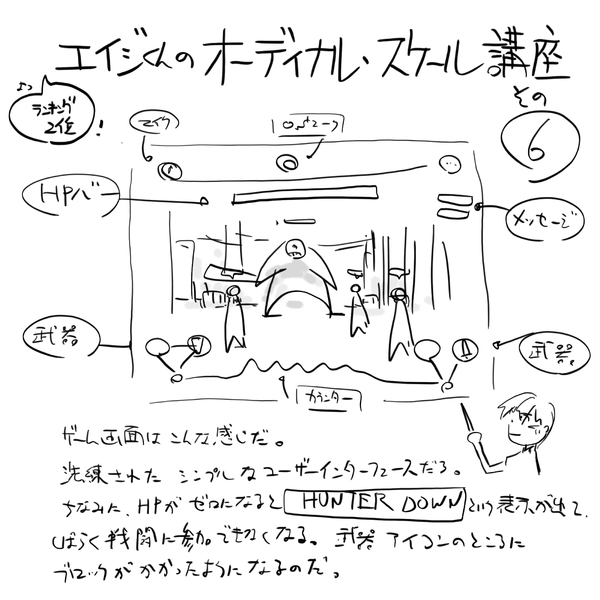 エイジくんのオーディカル・スケール講座
その
6
♪♪
ランキング
2位
!
マイク
HPバー
メッセージ
武器
武器
カウンター
ゲーム画面はこんな感じだ。
洗練されたシンプルなユーザーインターフェースだろ。
ちなみに、HPがゼロになると HUNTER DOWN という表示が出て、
しばらく戦闘に参加できなくなる。武器アイコンのところに
ブロックがかかったようになるのだ。